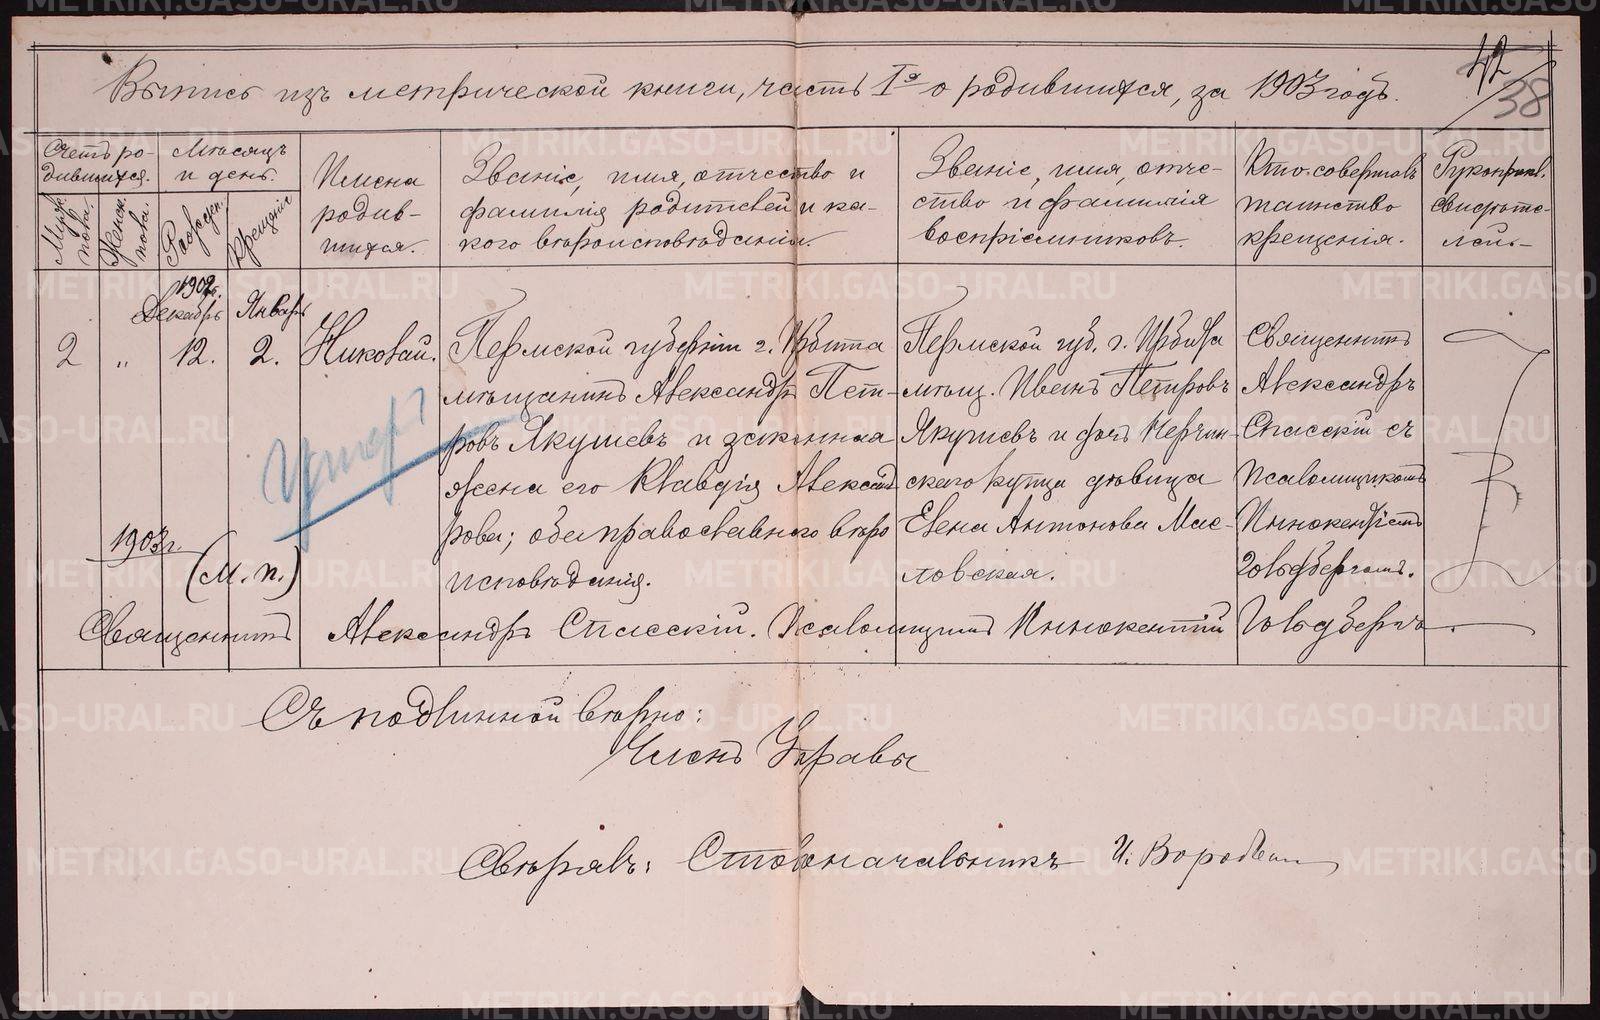 42
38
Выпись изъ метрической книги, часть Iя о родившихся, за 1903 годъ.
Счетъ ро-
дившихся.
Мѣсяцъ
и день.
Имена
родив-
шихся.
Званіе, имя, отчество и
фамилія родителей и ка-
кого вѣроисповѣданія.
Званіе, имя, отче-
ство и фамилія
воспріемниковъ.
Кто совершалъ
таинство
крещенія.
Рукоприкл.
свидѣте-
лей
Муж.
пола.
Женск.
пола.
Рожден.
Крещенія
1902г.
Декабрь Январь
2 „ 12. 2. Николай.
Пермской губерніи г. Ирбита
мѣщанинъ Александръ Пет-
ровъ Якушевъ и законная
жена его Клавдія Александ
рова; оба православнаго вѣро
исповѣданія.
Пермской губ. г. Ирбита
мѣщ. Иванъ Петровъ
Якушевъ и дочь Нерчин-
скаго купца дѣвица
Елена Антонова Мас-
ловская.
Священникъ
Александръ
Спасскій съ
псаломщикомъ
Иннокентіемъ
Гольдбергомъ.
Умеръ
1903г.
(М. п.)
Священникъ Александръ Спасскій. Псаломщикъ Иннокентій Гольдбергъ.
Съ подлинной вѣрно:
Членъ Управы
Свѣрялъ: Столоначальникъ И.
METRIKI.GASO-URAL.RU